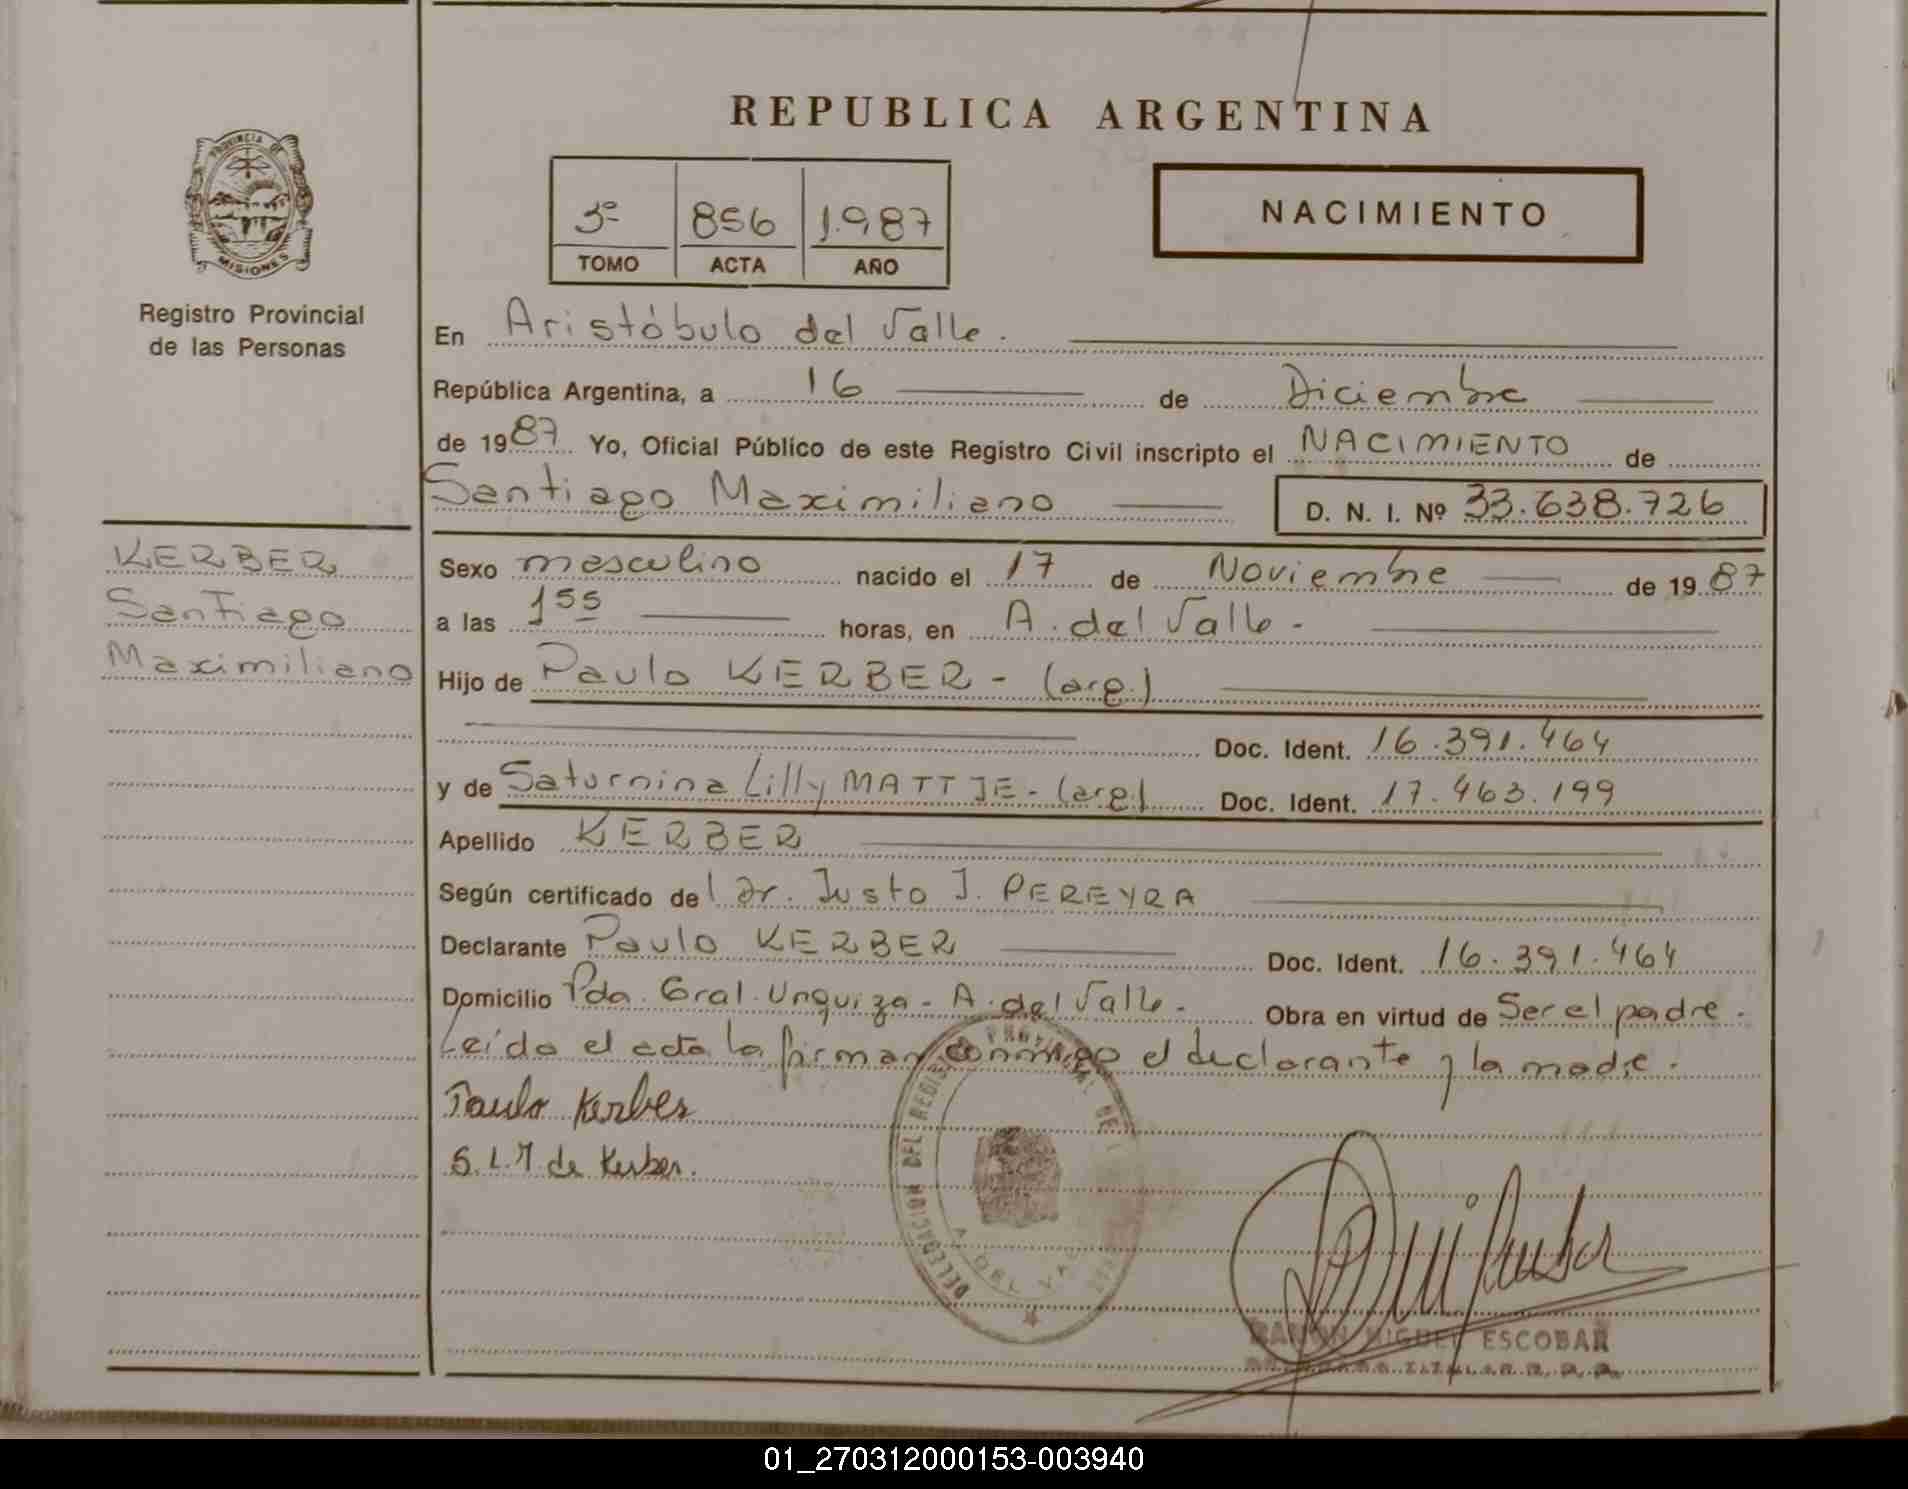 REPUBLICA ARGENTINA
PROVINCIA DE
MISIONES
Registro Provincial
de las Personas
3º 856 1.987
TOMO ACTA AÑO
NACIMIENTO
En Aristóbulo del Valle.
República Argentina, a 16 de Diciembre
de 1987 Yo, Oficial Público de este Registro Civil inscripto el NACIMIENTO de
Santiago Maximiliano D. N. I. Nº 33.638.726
KERBER
Santiago
Maximiliano
Sexo masculino nacido el 17 de Noviembre de 1987
a las 1 55 horas, en A. del Valle -
Hijo de Paulo KERBER - (arg.)
Doc. Ident. 16.391.464
y de Saturnina Lilly MATTJE - (arg) Doc. Ident. 17.463.199
Apellido KERBER
Según certificado del Dr. Justo J. PEREYRA
Declarante Paulo KERBER Doc. Ident. 16.391.464
Domicilio Pda. Gral. Unquiza - A. del Valle - Obra en virtud de Ser el padre.
Leída el acta la firman conmigo el declarante y la madre.
Paulo Kerber
S. L. M. de Kerber.
DELEGACION DEL REGISTRO PROVINCIAL DE
A. DEL VALLE
RAMON MIGUEL ESCOBAR
01_270312000153-003940